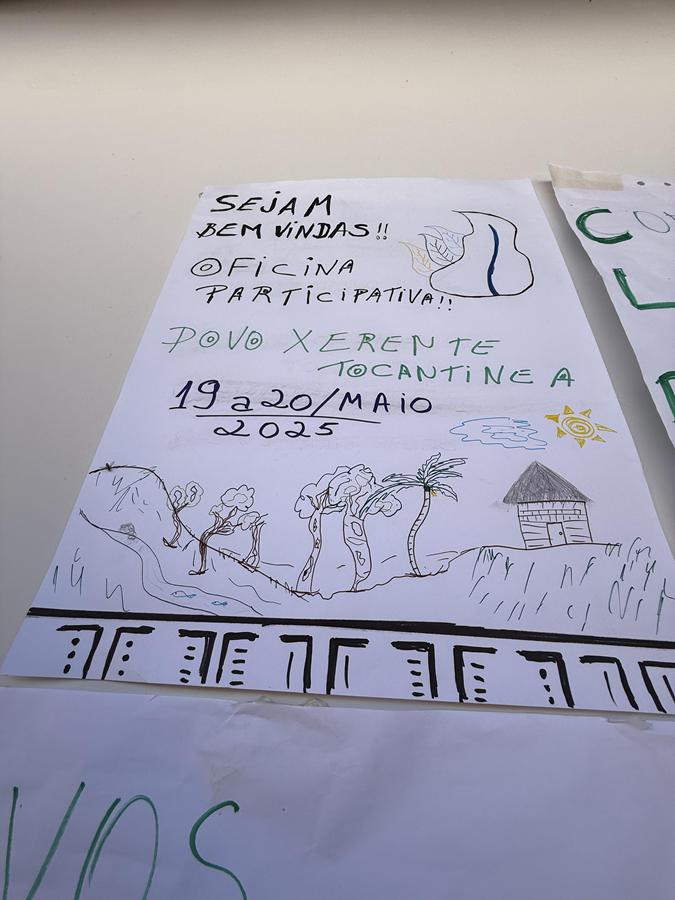 SEJAM
BEM VINDAS!!
OFICINA
PARTICIPATIVA!!
POVO XERENTE
TOCANTINEA
19 a 20/MAIO
2025
CO
L
VOS